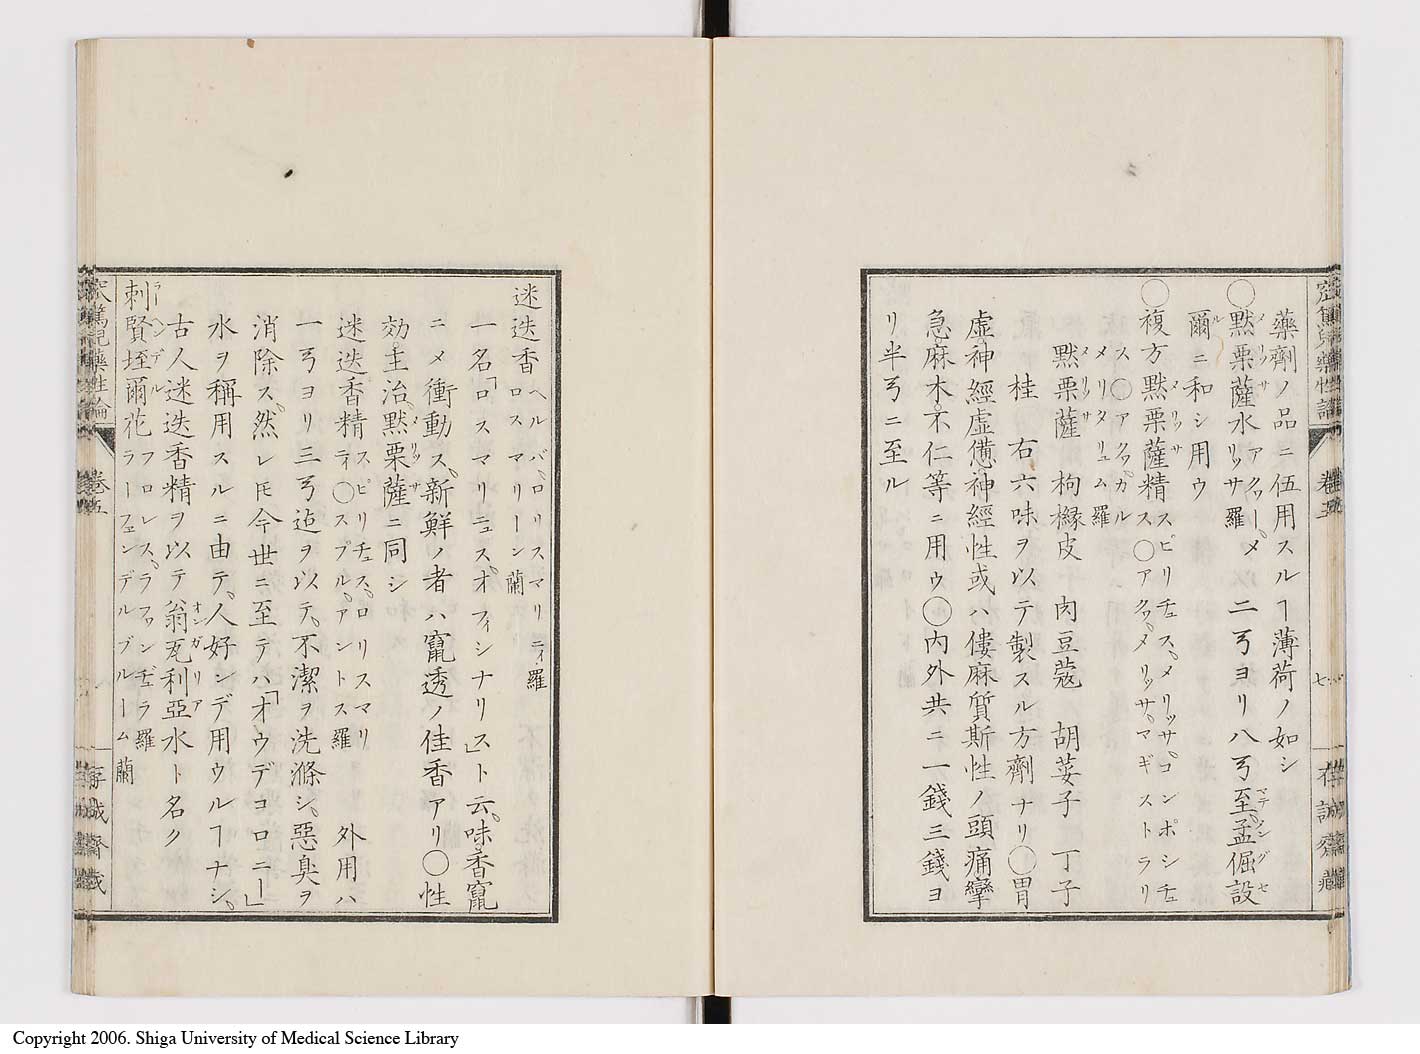 藥劑ノ品ニ伍用スルヿ薄荷ノ如シ
◯默栗薩水 メリッサ アクワー、メリッサ 羅 二弓ヨリ八弓至孟倔設 マテ メングセ
爾ニ和シ用ウ ル
◯複方默栗薩精 メリッサ スピリチュス、メリッサ、コンポシチュス ◯アクワ、メリッサ、マギストラリス ◯アクワ、カルメリタリュム 羅
默栗薩 メリッサ 枸櫞皮 肉豆蔲 胡荽子 丁子
桂 右六味ヲ以テ製スル方劑ナリ◯胃
虚神經虚憊神經性或ハ僂麻質斯性ノ頭痛攣
急麻木不仁等ニ用ウ◯内外共ニ一錢三錢ヨ
リ半弓ニ至ル
卷五
七
存誠齋藏
迷迭香 ヘルバ、ロリスマリニィ 羅 ロスマリーン 蘭
一名「ロスマリニュス、オフィシナリス」ト云、味香竄
ニメ衝動ス、新鮮ノ者ハ竄透ノ佳香アリ◯性
効主治、默栗薩ニ同シ メリッサ
迷迭香精 スピリチュス、ロリスマリティ ◯スプル、アントス 羅 外用ハ
一弓ヨリ三弓迠ヲ以テ、不潔ヲ洗滌シ、惡臭ヲ
消除ス、然レ𪜈今世ニ至テハ「オウデコロニー」
水ヲ稱用スルニ由テ、人好ンデ用ウルヿナシ、
古人迷迭香精ヲ以テ翁瓦利亞水ト名ク オンガリア
刺賢垤爾花 ラーヘンデル フロレス、ラファンデュラ 羅 ラーフェンデルブルーム 蘭
卷五
存誠齋藏
Copyright 2006. Shiga University of Medical Science Library